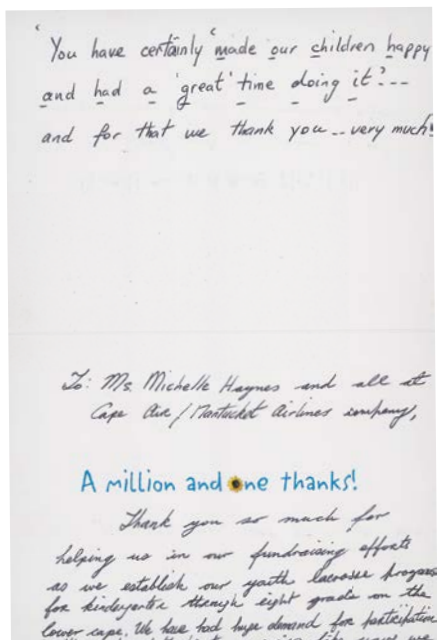 'You have certainly 'made our children happy
and had a 'great' time doing it?---
and for that we thank you -- very much!
To: Ms. Michelle Haynes and all at
Cape Air / Nantucket Airlines company,
A million and one thanks!
Thank you so much for
helping us in our fundraising efforts
as we establish our youth lacrosse program
for kindergarten through eight grade on the
lower cape. We have had huge demand for participation